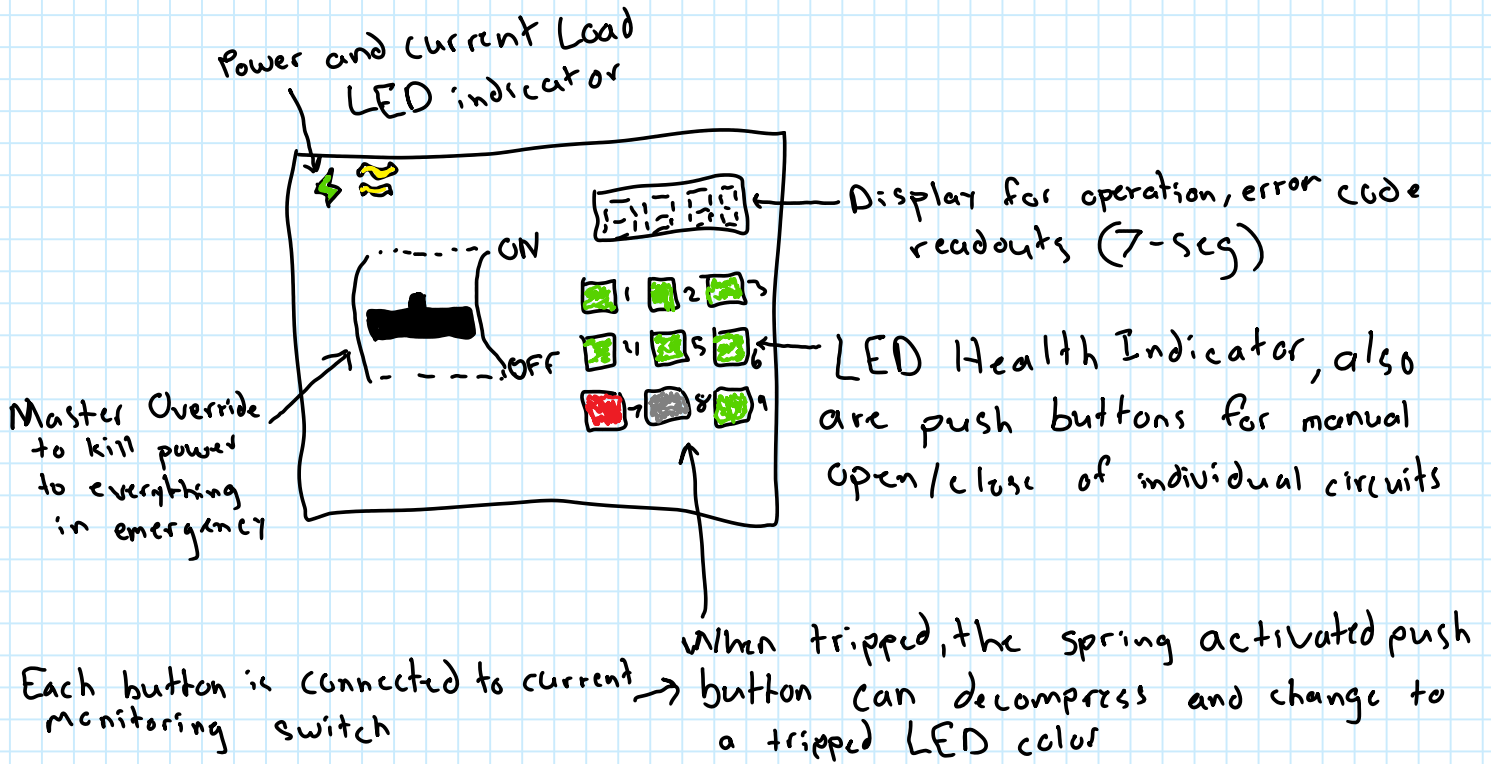 Power and current Load
LED indicator
Display for operation, error code
readouts (7-seg)
ON
OFF
1 2 3
4 5 6
7 8 9
LED Health Indicator, also
are push buttons for manual
open/close of individual circuits
Master Override
to kill power
to everything
in emergency
When tripped, the spring activated push
button can decompress and change to
a tripped LED color
Each button is connected to current
monitoring switch